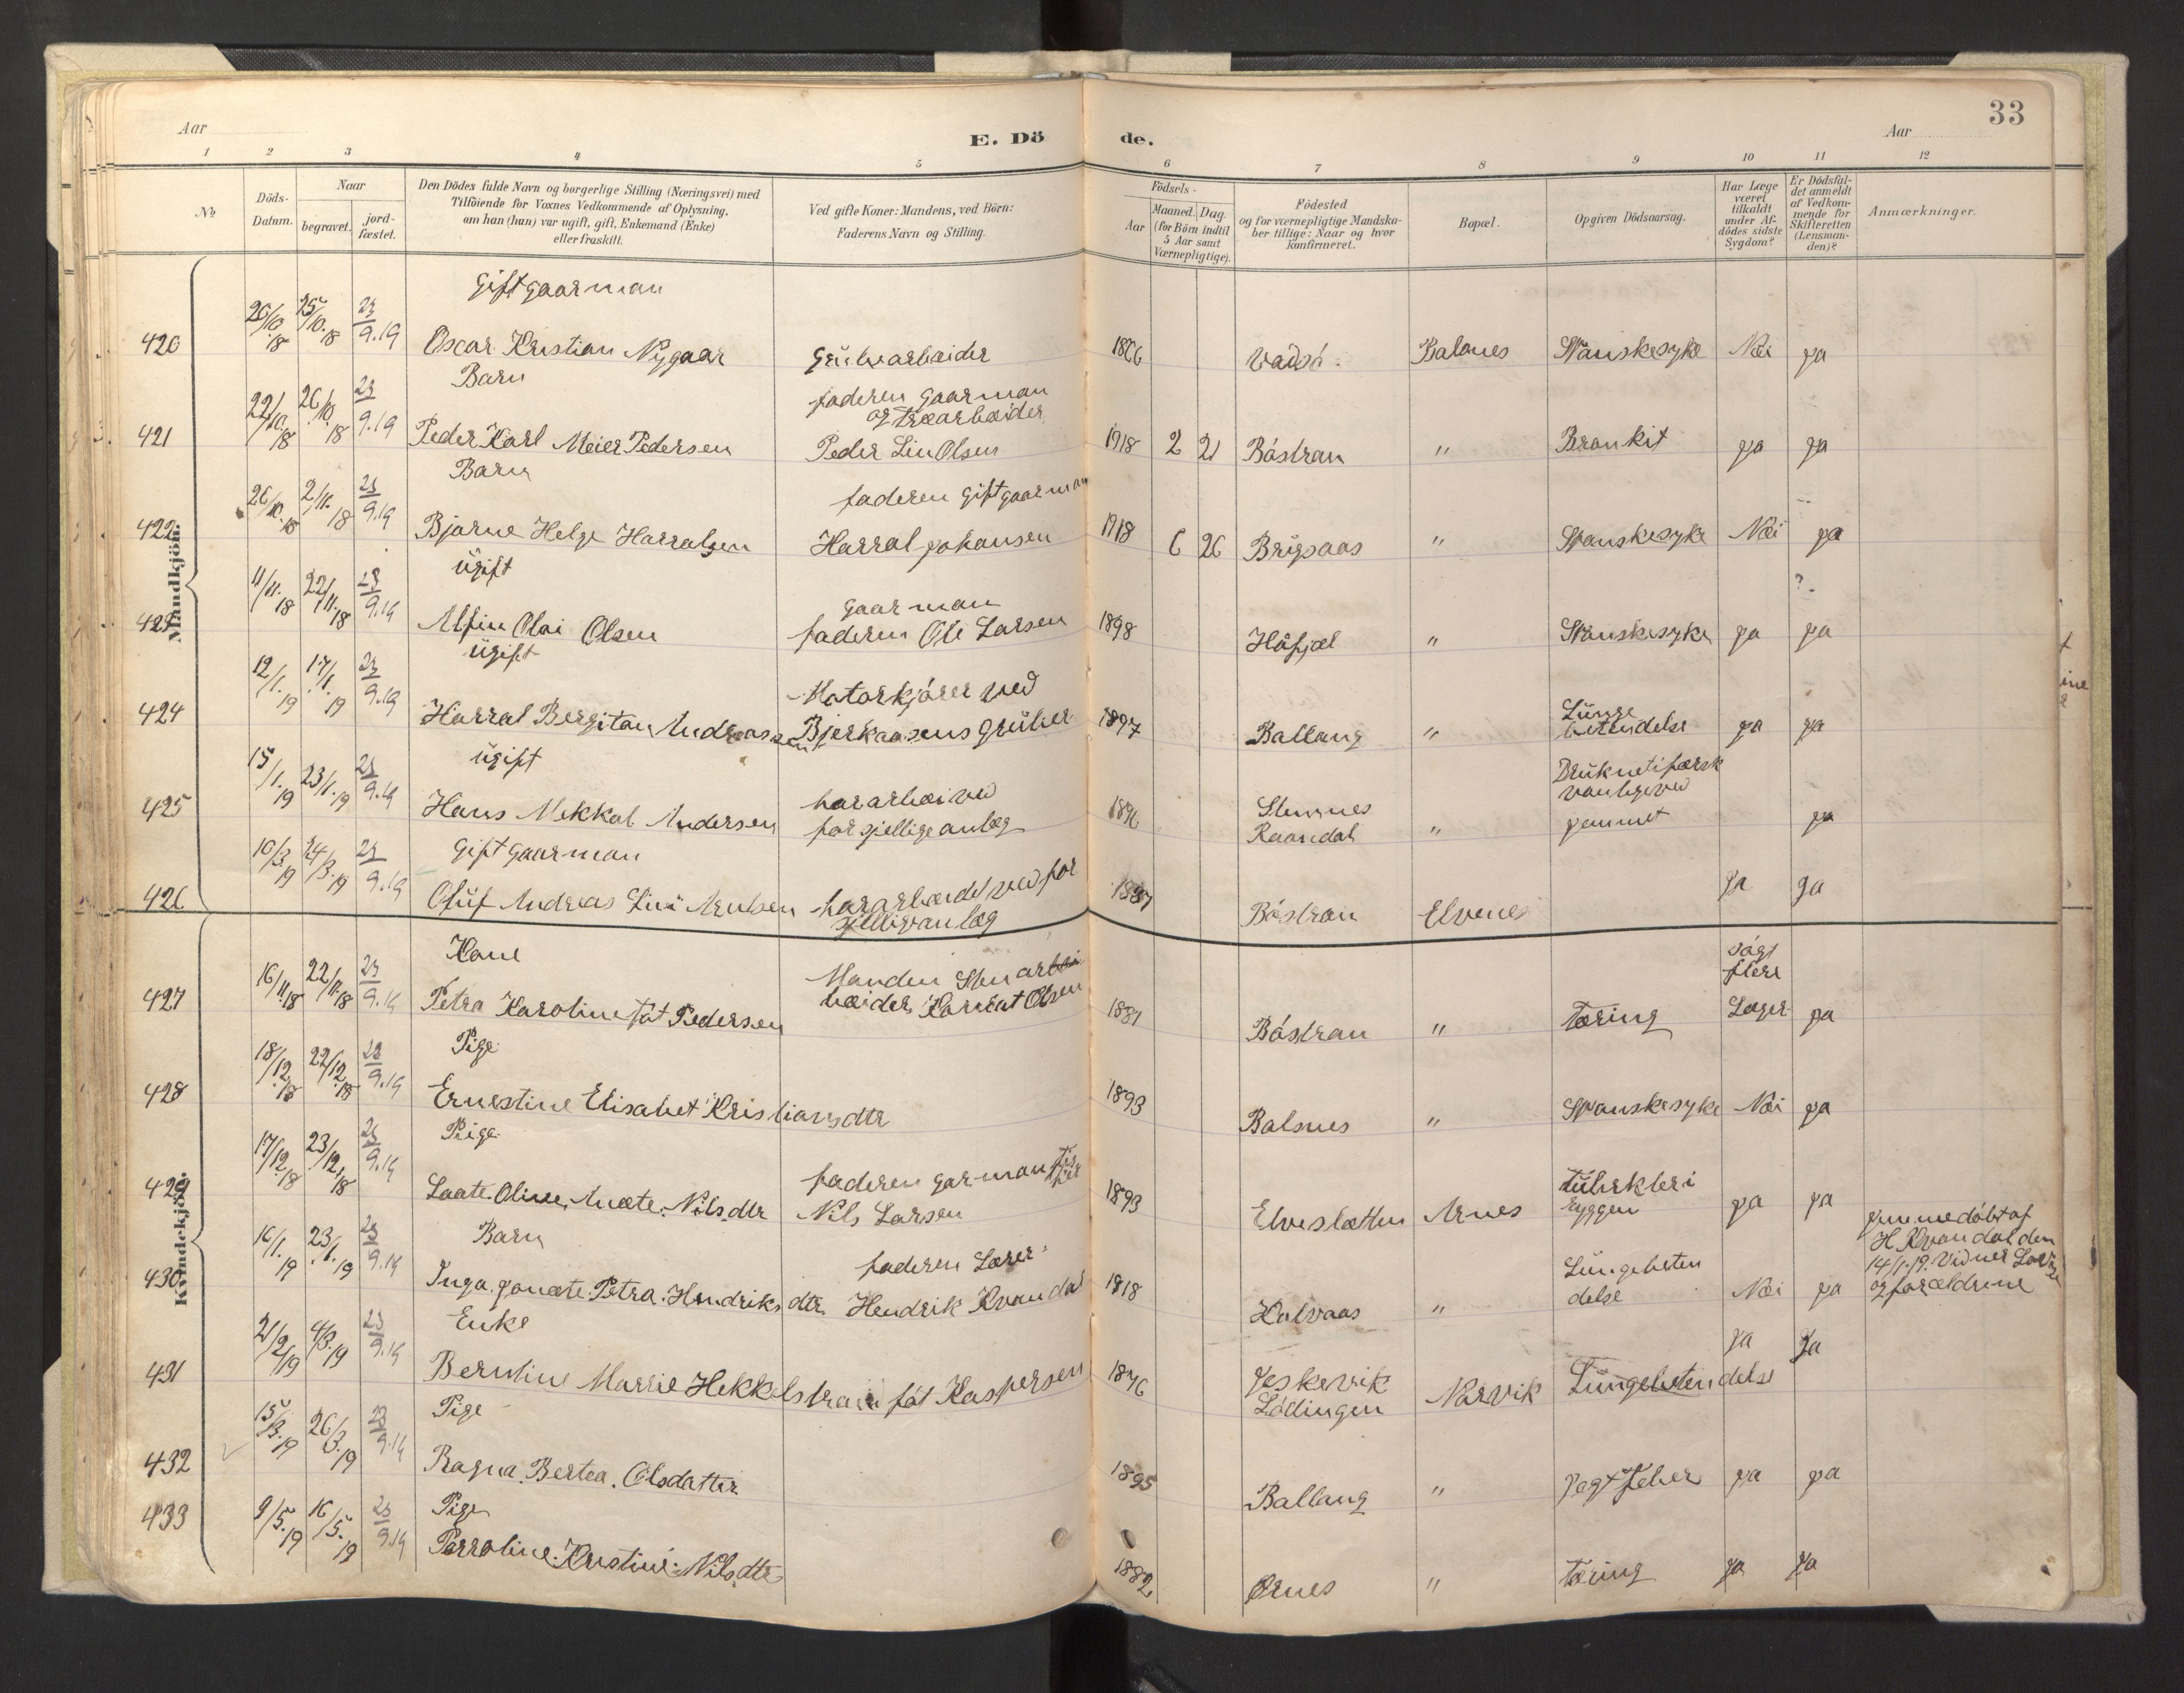 33
Aar
E. Dö
de.
Aar
1 2 3 4 5 6 7 8 9 10 11 12
No
Döds-
Datum.
Naar
begravet.
jord-
fæstet.
Den Dödes fulde Navn og borgerlige Stilling (Næringsvei) med
Tilföiende for Voxnes Vedkommende af Oplysning,
om han (hun) var ugift, gift, Enkemand (Enke)
eller fraskilt.
Ved gifte Koner: Mandens, ved Börn:
Faderens Navn og Stilling.
Födsels-
Aar
Maaned. Dag.
(for Börn indtil
5 Aar samt
Værnepligtige).
Födested
og for værnepligtige Mandska-
ber tillige: Naar og hvor
konfirmeret.
Bopæl.
Opgiven Dödsaarsag.
Har Læge
været
tilkaldt
under Af-
dödes sidste
Sygdom?
Er Dödsfal-
det anmeldt
af Vedkom-
mende for
Skifteretten
(Lensman-
den)?
Anmærkninger.
Mandkjön.
Gift gaarman
420 20/10.18 25/10.18 23/9.19 Oscar Kristian Nygaar Grubearbeider 1866 Vadsö. Balsnes Spanskesyke Nei ja
Barn faderen gaarman
og træarbeider
421 22/10.18 26/10.18 23/9.19 Peder Karl Meier Pedersen Peder Lin Olsen 1918 2 21 Båstran " Bronkit ja ja
Barn faderen gift gaarman
422 26/10.18 2/11.18 23/9.19 Bjarne Helge Harralsen Harral Johansen 1918 6 26 Brigsaas " Spanskesyke Nei ja
ugift gaarman ?
423 11/11.18 22/11.18 23/9.19 Alfin Olai Olsen faderen Ole Larsen 1898 Håfjel " Spanskesyke ja ja
ugift Motorkjörer ved Lunge
424 12/1.19 17/1.19 23/9.19 Harral Bergiton Andreassen Bjerkaasens Gruber 1897 Ballang " betendelse ja ja
ugift har arbei ved Druknet i færsk
425 15/1.19 23/1.19 23/9.19 Hans Mekkal Andersen forsjellige anlæg 1896 Raandal " ja
Gift gaarman
426 10/3.19 24/3.19 23/9.19 Oluf Andreas Lini Arntsen har arbeidet ved for
sjellige anlæg Båstran Elvenes Ja Ja
Kvindekjön.
Kone Manden Stenarbei
427 16/11.18 22/11.18 23/9.19 Petra Karoline föt Pedersen beider Konrat Olsen 1881 Båstran " Tæring Sögt
flere
Læger ja
Pige
428 18/12.18 22/12.18 23/9.19 Ernestine Elisabet Kristiansdtr 1893 Balsnes " Spanskesyke Nei ja
Pige faderen garman fisker
429 17/12.18 23/12.18 23/9.19 Laate Oline Anete Nilsdtr Nils Larsen 1893 Elvesletten Arnes Tuberkler i
Ryggen ja ja
Barn faderen Lærer
430 16/1.19 23/1.19 23/9.19 Inga Jonæte Petra Hendriksdtr Hendrik Kvandal 1918 Halvaas " Lungebeten
delse Nei ja
jemmedöbt af
H Kvandal den
14/1.19. Vidner Lærer
og forældrene
Enke
431 21/2.19 4/3.19 23/9.19 Berntine Marrie Hekkelstran föt Kaspersen 1876 Jeskevik
Lödingen Narvik Lungebetendelse Ja Ja
Pige
432 15/3.19 26/3.19 23/9.19 Ragna Bertea Olsdatter 1895 Ballang " ja ja
Pige
433 9/5.19 16/5.19 23/9.19 Parroline Kristine Nilsdtr 1882 Ørnes " Tæring Ja Ja